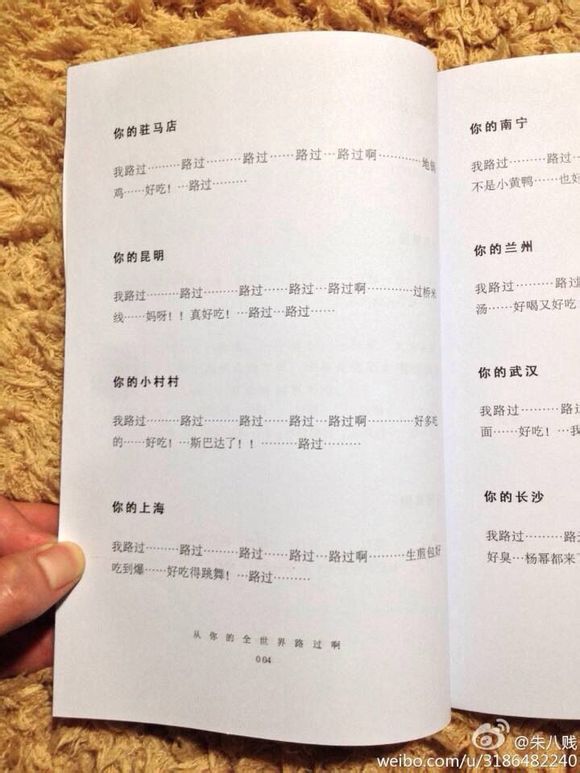 你的驻马店
我路过………路过………路过……路过…路过啊…………地锅
鸡……好吃！…路过………
你的昆明
我路过………路过………路过……路过…路过啊…………过桥米
线……妈呀！！真好吃！…路过…路过……
你的小村村
我路过………路过………路过……路过…路过啊…………好多吃
的……好吃！…斯巴达了！！………路过……
你的上海
我路过………路过………路过……路过…路过啊…………生煎包好
吃到爆……好吃得跳舞！…路过………
从你的全世界路过啊
004
你的南宁
我路过………路过
不是小黄鸭……也好
你的兰州
我路过………路过
汤……好喝又好吃
你的武汉
我路过………路过
面……好吃！…我
你的长沙
我路过………路
好臭…杨幂都来了
@朱八贱
weibo.com/u/3186482240